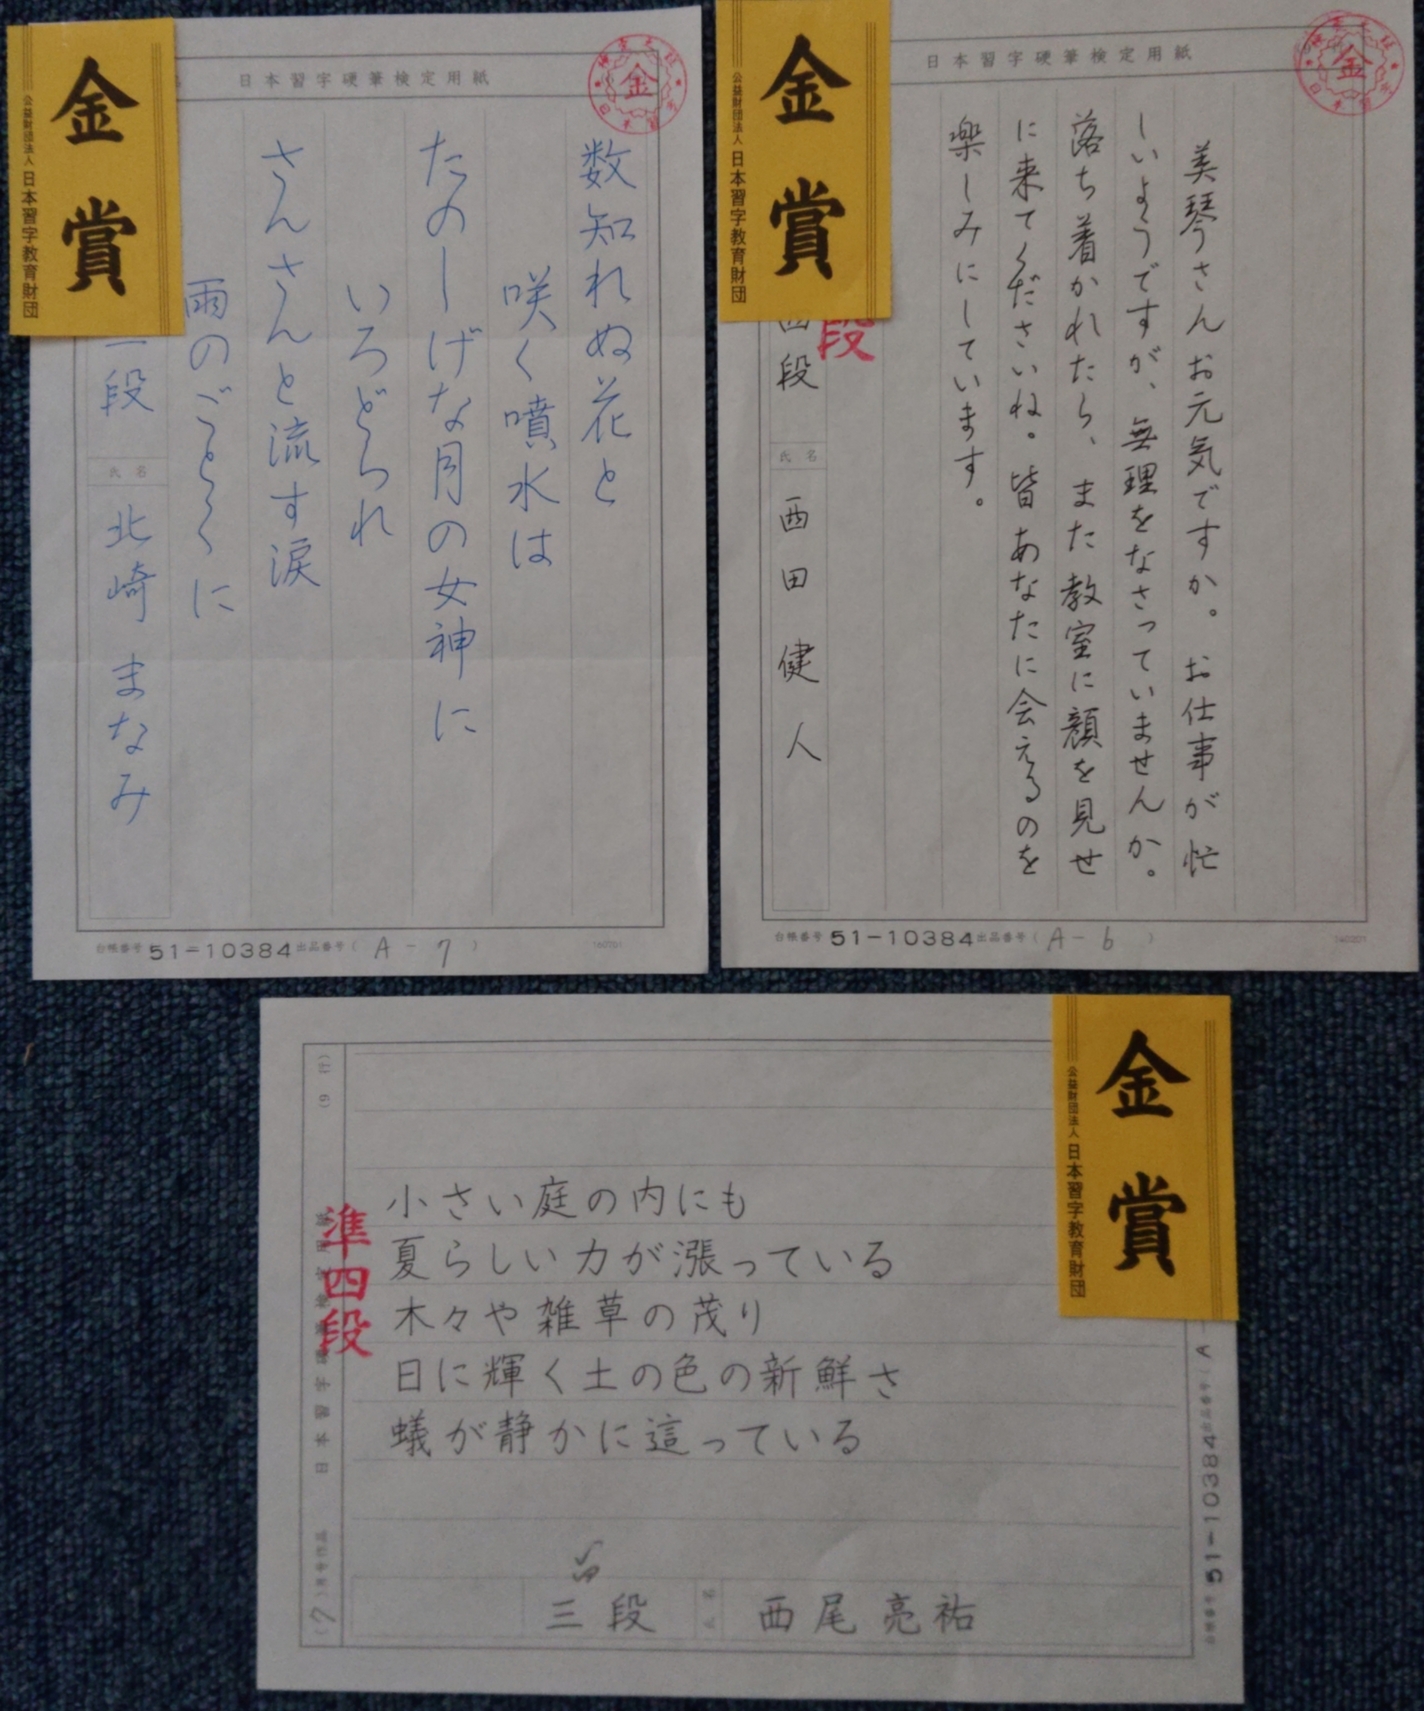 金賞
公益財団法人 日本習字教育財団
日本習字硬筆検定用紙
金
数知れぬ花と
咲く噴水は
たのしげな月の女神に
いろどられ
さんさんと流す涙
雨のごとくに
段
氏名
北崎まなみ
台帳番号 51-10384 出品番号(A-7)
160701
金賞
公益財団法人 日本習字教育財団
日本習字硬筆検定用紙
金
美琴さんお元気ですか。お仕事が忙
しいようですが、無理をなさっていませんか。
落ち着かれたら、また教室に顔を見せ
に来てくださいね。皆あなたに会えるのを
楽しみにしています。
段
四段
氏名
西田健人
台帳番号 51-10384 出品番号(A-6)
金賞
公益財団法人 日本習字教育財団
準四段
小さい庭の内にも
夏らしい力が漲っている
木々や雑草の茂り
日に輝く土の色の新鮮さ
蟻が静かに這っている
三段
氏名
西尾亮祐
(7)月号作品
日本習字硬筆検定用紙
(9行)
台帳番号 51-10384 出品番号(A-